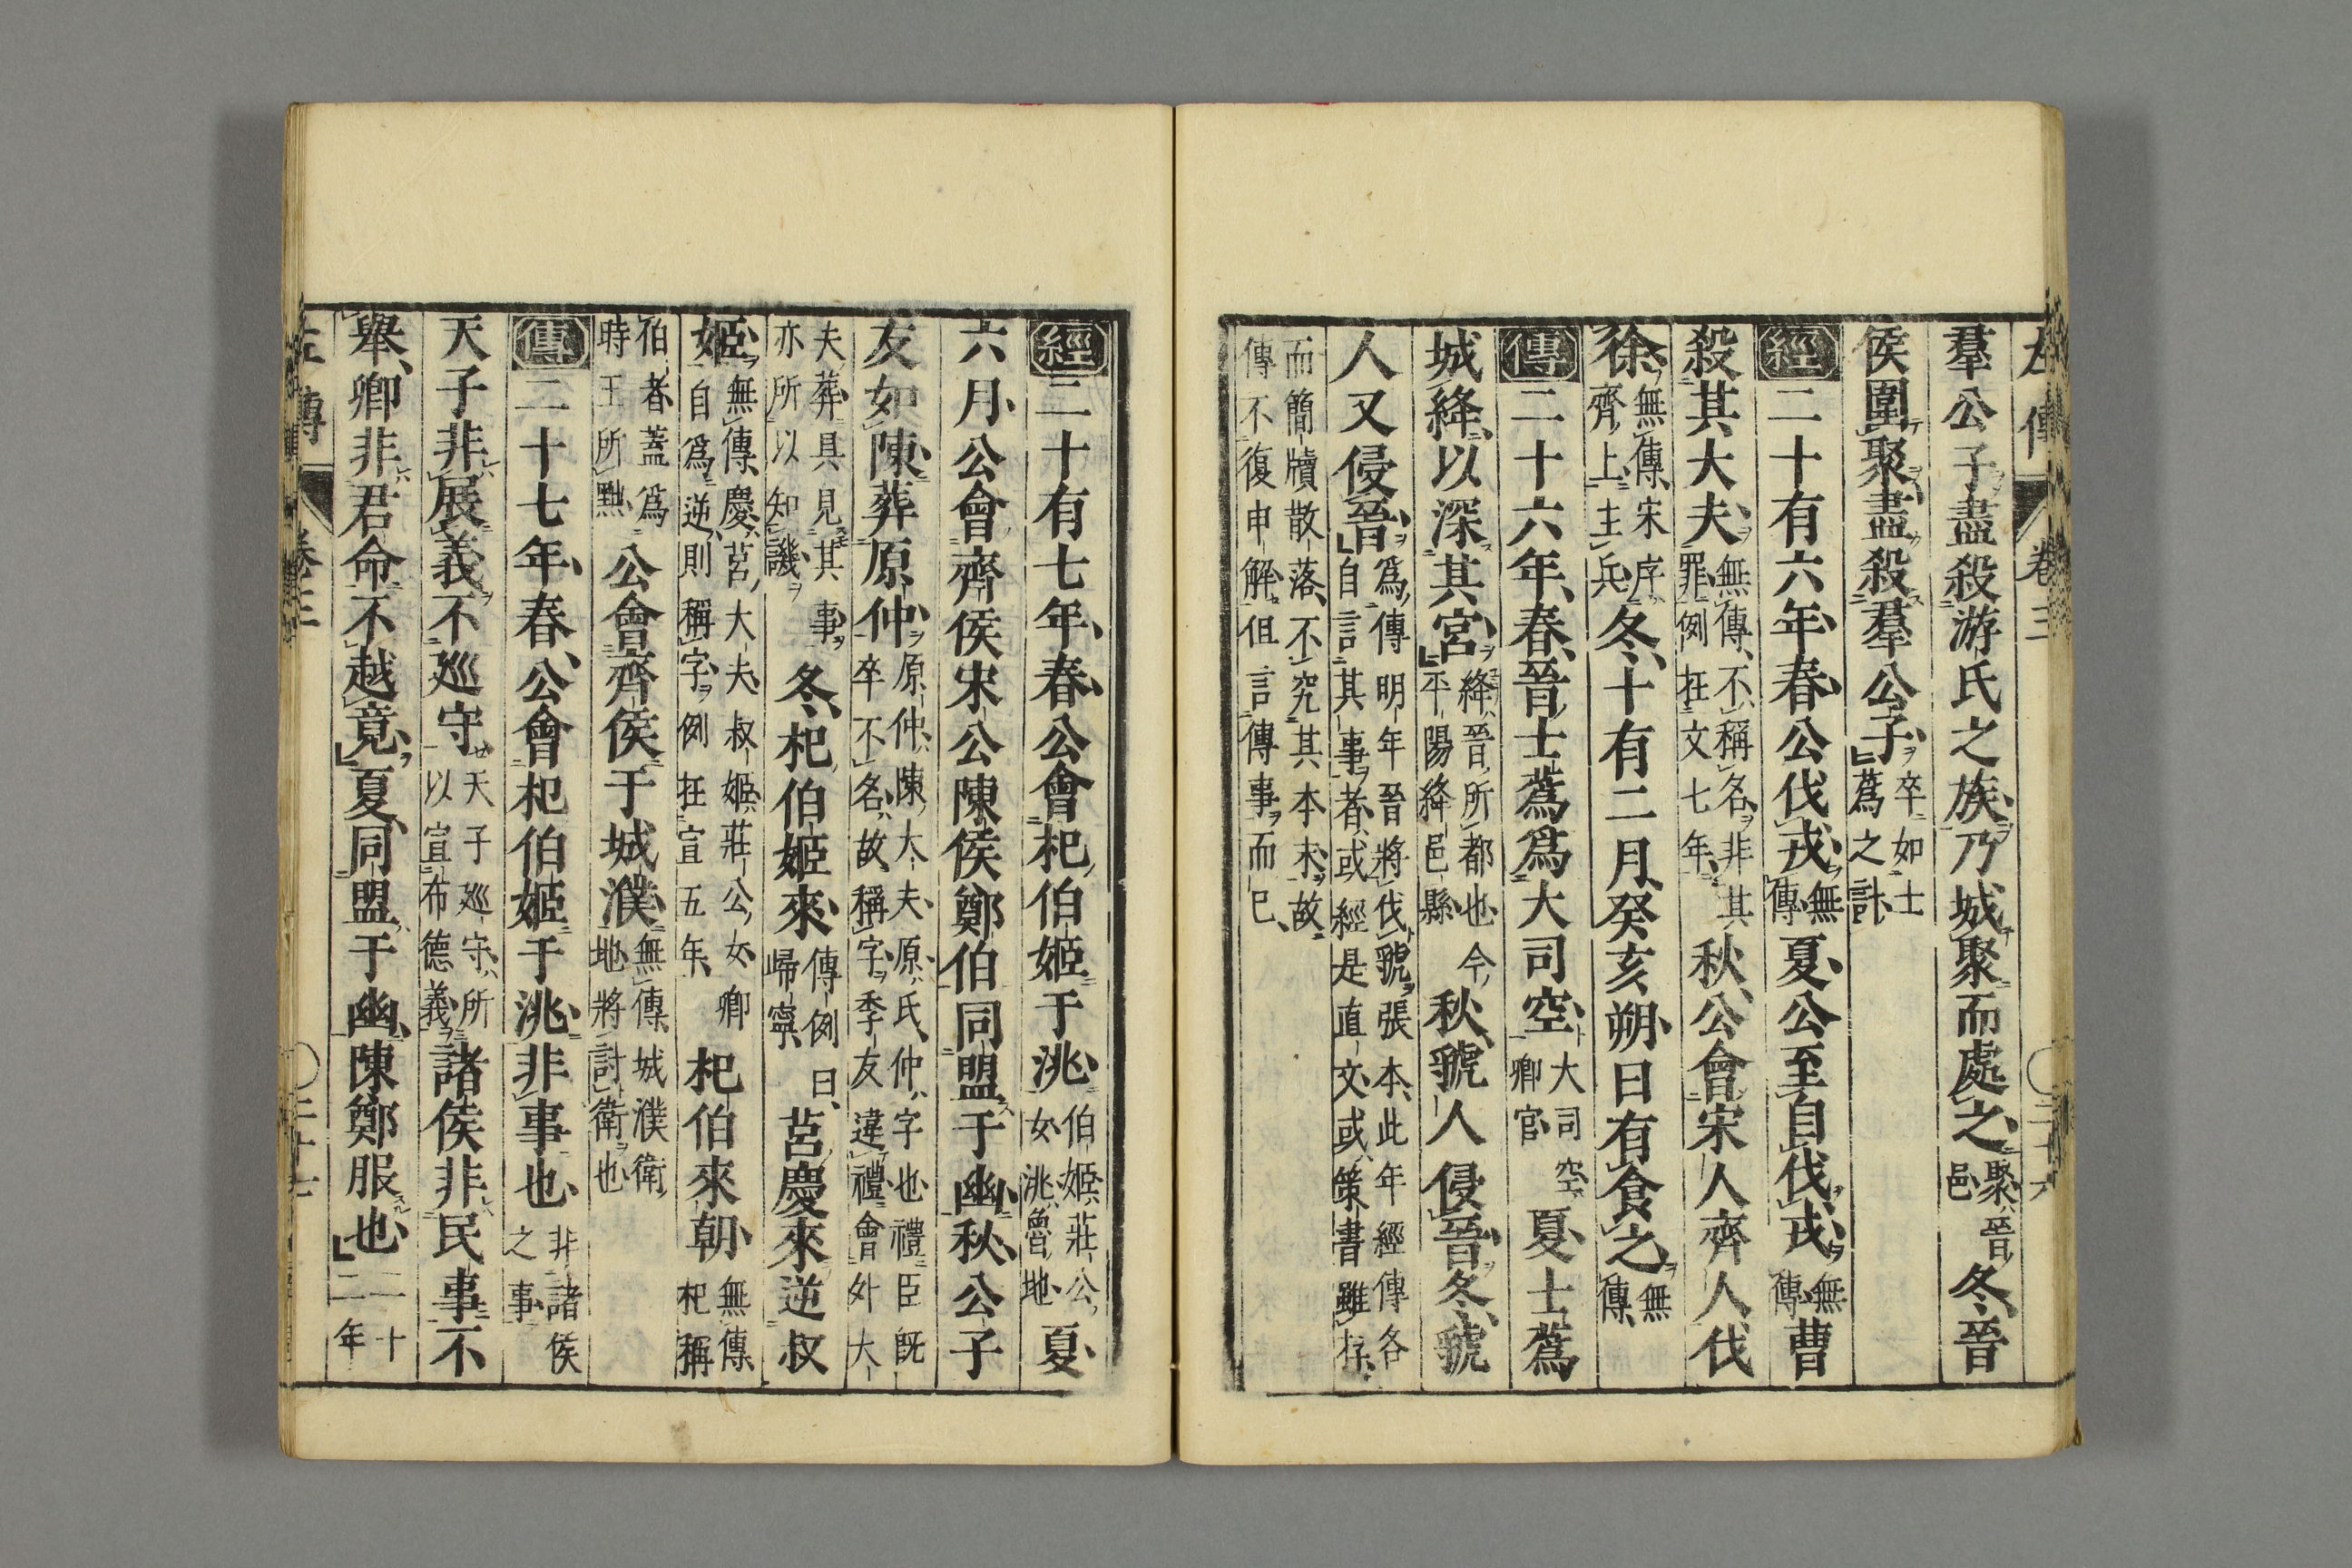 左傳 卷三 〇二十六
羣公子盡殺游氏之族乃城聚而處之聚晉邑冬晉
侯圍聚盡殺羣公子卒如士蒍之計
經二十有六年春公伐戎無傳夏公至自伐戎無傳曹
殺其大夫無傳不稱名非其罪例在文七年秋公會宋人齊人伐
徐無傳宋序齊上主兵冬十有二月癸亥朔日有食之無傳
傳二十六年春晉士蒍爲大司空大司空卿官夏士蒍
城絳以深其宮絳晉所都也今平陽絳邑縣秋虢人侵晉冬虢
人又侵晉爲傳明年晉將伐虢張本此年經傳各自言其事者或經是直文或策書雖存
而簡牘散落不究其本末故傳不復申解但言傳事而已
經二十有七年春公會杞伯姬于洮伯姬莊公女洮魯地夏
六月公會齊侯宋公陳侯鄭伯同盟于幽秋公子
友如陳葬原仲原仲陳大夫原氏仲字也禮臣既卒不名故稱字季友違禮會外大
夫葬具見其事亦所以知譏冬杞伯姬來傳例曰歸寧莒慶來逆叔
姬無傳慶莒大夫叔姬莊公女卿自爲逆則稱字例在宣五年杞伯來朝無傳杞稱
伯者蓋爲時王所黜公會齊侯于城濮無傳城濮衛地將討衛也
傳二十七年春公會杞伯姬于洮非事也非諸侯之事
天子非展義不巡守天子巡守所以宣布德義諸侯非民事不
舉卿非君命不越竟夏同盟于幽陳鄭服也二十二年
左傳 卷三 〇二十七